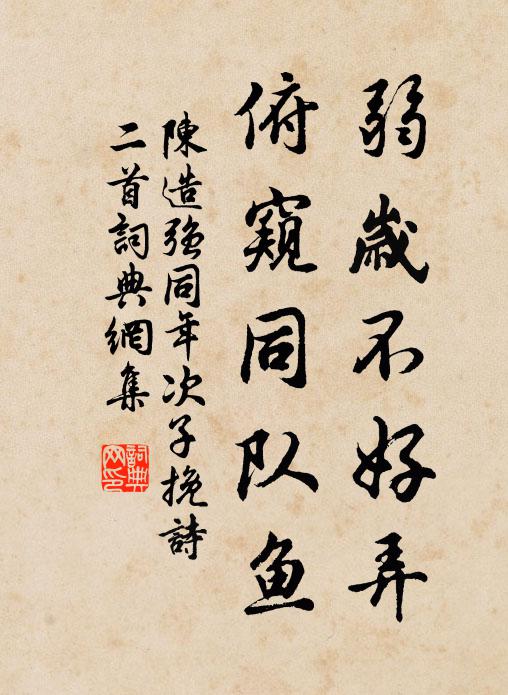 弱歲不好弄
俯窺同队鱼
陳造強同年次子挽詩
二首詞典網集
詞典网印